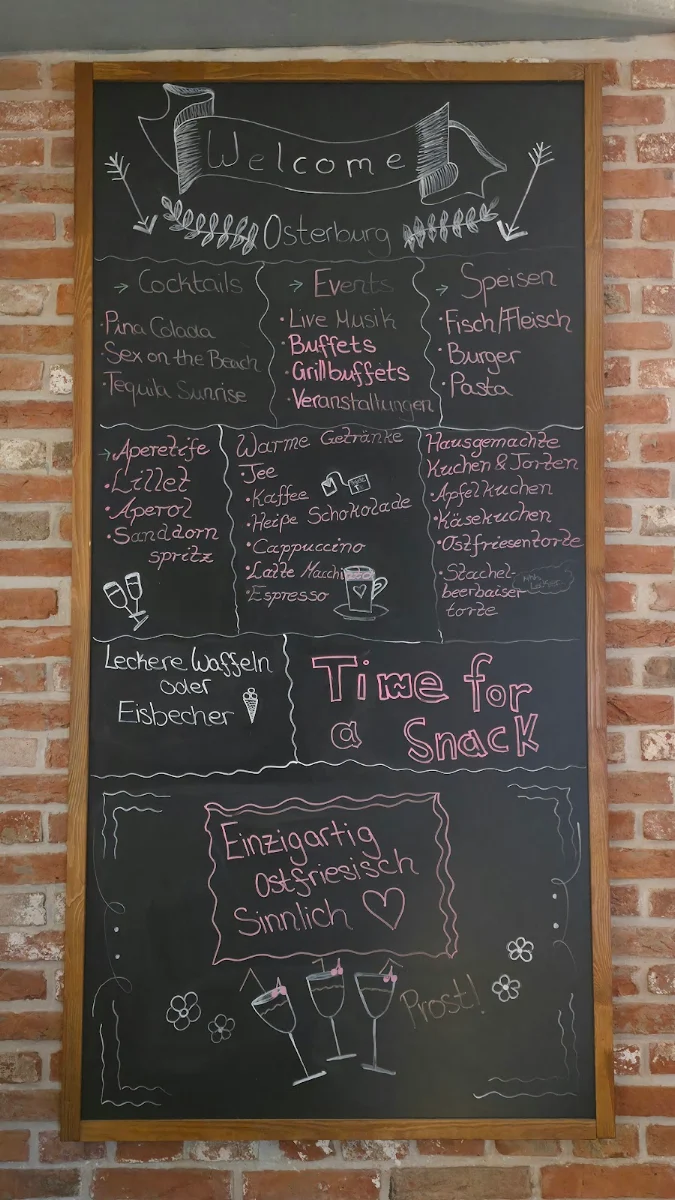 Welcome
Osterburg
→ Cocktails
· Pina Colada
· Sex on the Beach
· Tequila Sunrise
→ Events
· Live Musik
· Buffets
· Grillbuffets
· Veranstaltungen
→ Speisen
· Fisch/Fleisch
· Burger
· Pasta
→ Aperetife
· Lillet
· Aperol
· Sanddorn
spritz
Warme Getränke
· Tee
· Kaffee
· Heiße Schokolade
· Cappuccino
· Latte Macchi
· Espresso
Hausgemachte
Kuchen & Torten
· Apfelkuchen
· Käsekuchen
· Ostfriesentorte
· Stachel-
beerbaiser
torte
Leckere Waffeln
oder
Eisbecher
Time for
a Snack
Einzigartig
Ostfriesisch
Sinnlich
Prost!